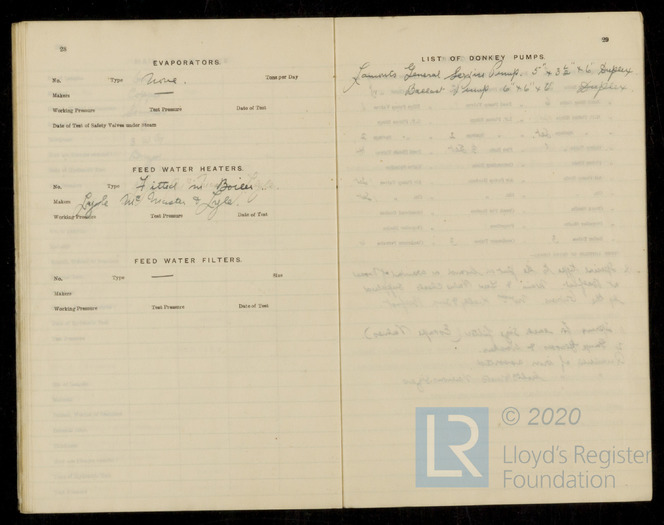 28
EVAPORATORS.
No. Type None. Tons per Day
Makers —
Working Pressure Test Pressure Date of Test
Date of Test of Safety Valves under Steam
FEED WATER HEATERS.
No. Type Fitted in Boiler
Makers Lyle
Working Pressure Test Pressure Date of Test
FEED WATER FILTERS.
No. Type — Size
Makers
Working Pressure Test Pressure Date of Test
29
LIST OF DONKEY PUMPS.
Lamonts General Service Pump. 5" x 3½" x 6" Duplex
Ballast Pump 6" x 6" x 6" Duplex
© 2020
LR
Lloyd's Register
Foundation